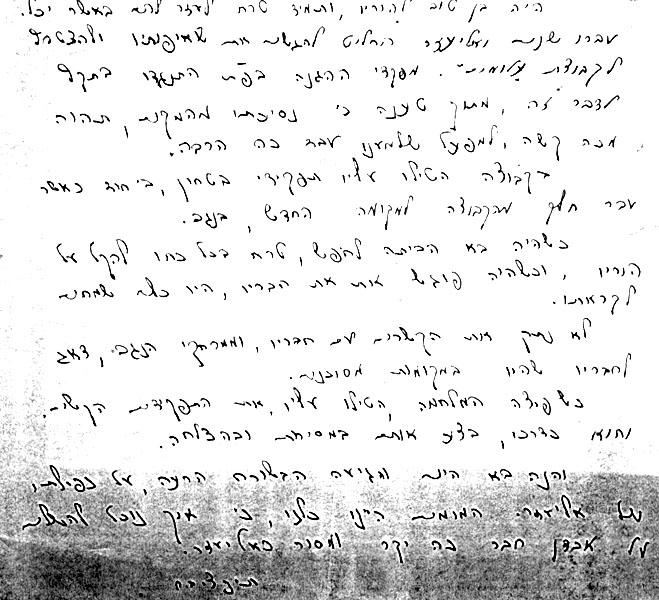 היה בן טוב להוריו, ותמיד טרח לעזר להם באשר יכל.
עברו שנים ואליעזר החליט להגשים את שאיפותיו ולהצטרף
לקבוצת "עלומים". מפקדי ההגנה בפ"ת התנגדו בתקף
לדבר זה, מתוך טענה כי נסיעתו מהמקום, תהוה
מכה קשה, למפעל שלמענו עבד כה הרבה.
בקבוצה הטילו עליו תפקידי בטחון, ביחוד כאשר
עבר חלק מהקבוצה למקומה החדש, בנגב.
כשהיה בא הביתה לחפש, טרח בכל כחו להקל על
הוריו, וכשהיה פוגש אותו את חבריו, היו כלם שמחים
לקראתו.
לא נתק את הקשרים עם חבריו, וממרחקי הנגב, דאג
לחבריו שהיו במקומות מסוכנים.
כשפרצה המלחמה, הטילו עליו, את התפקידים הקשים.
והוא כדרכו, בצע אותם במסירות ובהצלחה.
והנה בא היום ומגיעה הבשורה הרעה, על נפילתו,
של אליעזר. המומים היינו כלנו, כי איך נוכל להתנחם
על אבדן חבר כה יקר ומסור כאליעזר.